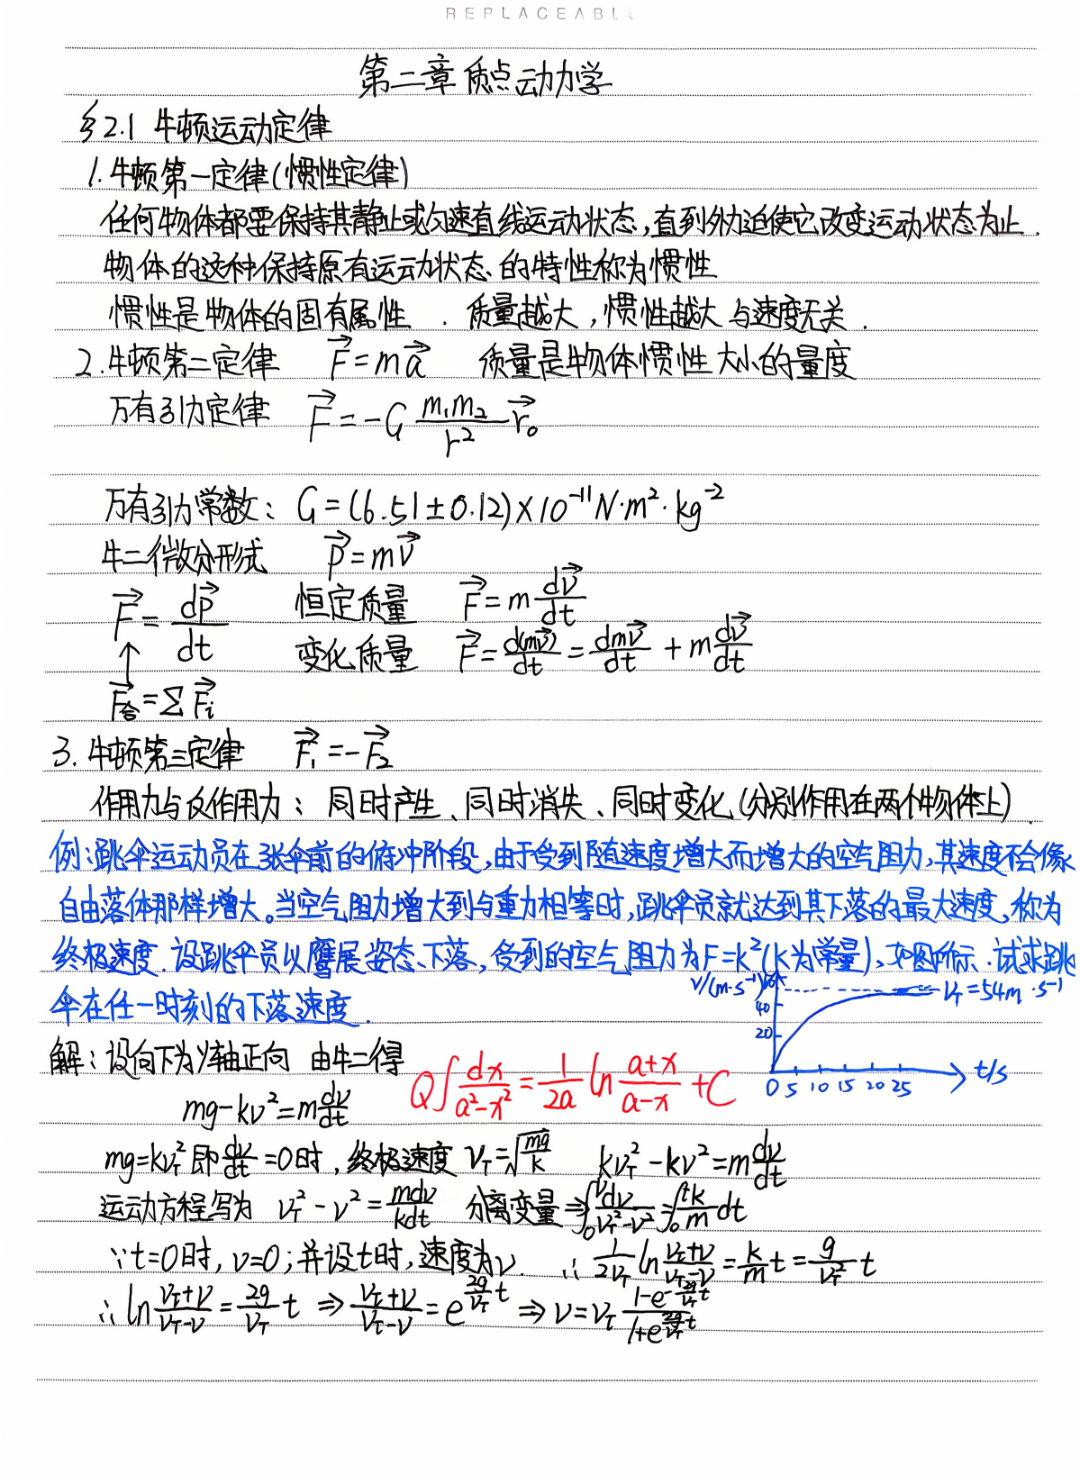 REPLACEABLE
第二章 质点动力学
§2.1 牛顿运动定律
1.牛顿第一定律(惯性定律)
任何物体都要保持其静止或匀速直线运动状态,直到外力迫使它改变运动状态为止.
物体的这种保持原有运动状态的特性称为惯性
惯性是物体的固有属性. 质量越大,惯性越大 与速度无关.
2.牛顿第二定律 F⃗=ma⃗ 质量是物体惯性大小的量度
万有引力定律 F⃗=-G m₁m₂/r² r⃗₀
万有引力常数: G=(6.51±0.12)×10⁻¹¹N·m²·kg⁻²
牛二微分形式 P⃗=mV⃗
F⃗=dP⃗/dt 恒定质量 F⃗=m dv⃗/dt
↑ 变化质量 F⃗=d(mv⃗)/dt=dmv⃗/dt+m dv⃗/dt
F⃗合=ΣF⃗i
3.牛顿第三定律 F⃗₁=-F⃗₂
作用力与反作用力: 同时产生、同时消失、同时变化(分别作用在两个物体上)
例:跳伞运动员在张伞前的俯冲阶段,由于受到随速度增大而增大的空气阻力,其速度不会像
自由落体那样增大。当空气阻力增大到与重力相等时,跳伞员就达到其下落的最大速度,称为
终极速度.设跳伞员以鹰展姿态下落,受到的空气阻力为F=k²(k为常量),如图所示.试求跳
伞在任一时刻的下落速度.
v/(m·s⁻¹) 60 V_T=54m·s⁻¹
40
20
0 5 10 15 20 25 t/s
解:设向下为y轴正向 由牛二得
Q∫dx/(a²-x²)=1/2a ln (a+x)/(a-x)+C
mg-kv²=m dv/dt
mg=kv_T² 即 dv/dt=0时,终极速度 V_T=√(mg/k) kv_T²-kv²=m dv/dt
运动方程写为 v_T²-v²=mdv/kdt 分离变量⇒∫₀ᵛ dv/(v_T²-v²)=∫₀ᵗ k/m dt
∵t=0时,v=0;并设t时,速度为v. ∴ 1/2v_T ln (v_T+v)/(v_T-v)=k/m t=g/v_T² t
∴ln (v_T+v)/(v_T-v)=2g/v_T t ⇒ (v_T+v)/(v_T-v)=e^(2g/v_T t) ⇒ v=v_T (1-e^(-2g/v_T t))/(1+e^(2g/v_T t))